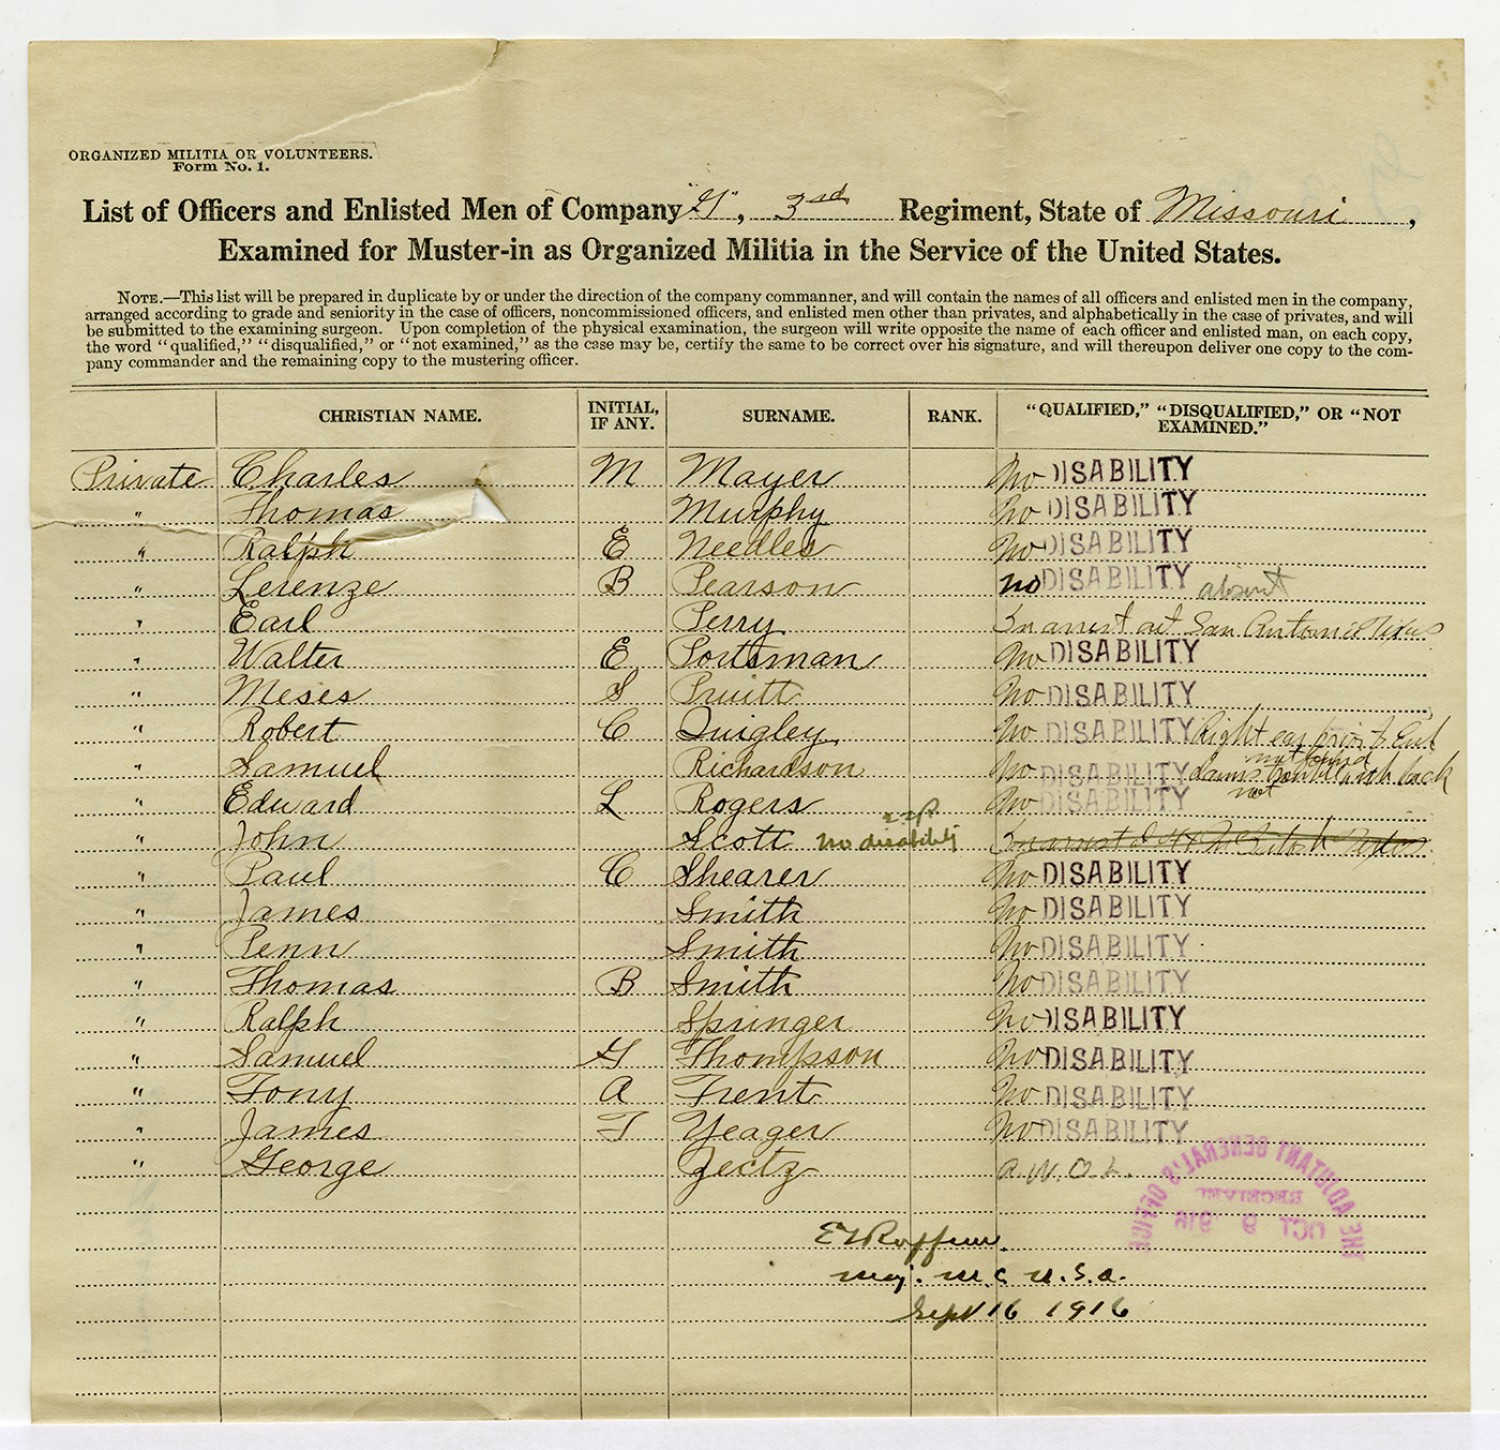 ORGANIZED MILITIA OR VOLUNTEERS.
Form No. 1.
List of Officers and Enlisted Men of Company "G", 3rd Regiment, State of Missouri,
Examined for Muster-in as Organized Militia in the Service of the United States.
NOTE.—This list will be prepared in duplicate by or under the direction of the company commanner, and will contain the names of all officers and enlisted men in the company,
arranged according to grade and seniority in the case of officers, noncommissioned officers, and enlisted men other than privates, and alphabetically in the case of privates, and will
be submitted to the examining surgeon. Upon completion of the physical examination, the surgeon will write opposite the name of each officer and enlisted man, on each copy,
the word "qualified," "disqualified," or "not examined," as the case may be, certify the same to be correct over his signature, and will thereupon deliver one copy to the com-
pany commander and the remaining copy to the mustering officer.
CHRISTIAN NAME. INITIAL, IF ANY. SURNAME. RANK. "QUALIFIED," "DISQUALIFIED," OR "NOT EXAMINED."
Private Charles M Mayer No DISABILITY
" Thomas Murphy No DISABILITY
" Ralph E Needles No DISABILITY
" Lerenze B Pearson no DISABILITY absent
" Earl Perry In arrest at San Antonio Texas
" Walter E Portsman No DISABILITY
" Meses S Pruitt No DISABILITY
" Robert C Quigley No DISABILITY Right ear
" Samuel Richardson No DISABILITY back
" Edward L Rogers No DISABILITY
" John Scott no disability In arrest
" Paul C Shearer No DISABILITY
" James Smith No DISABILITY
" Penn Smith No DISABILITY
" Thomas B Smith No DISABILITY
" Ralph Springer No DISABILITY
" Samuel G Thompson No DISABILITY
" Tony A Trent No DISABILITY
" James T Yeager No DISABILITY
" George Zectz A.W.O.L.
THE ADJUTANT GENERAL'S OFFICE
RECEIVED
OCT 9 1916
Maj. M.C. U.S.A.
Sept 16 1916